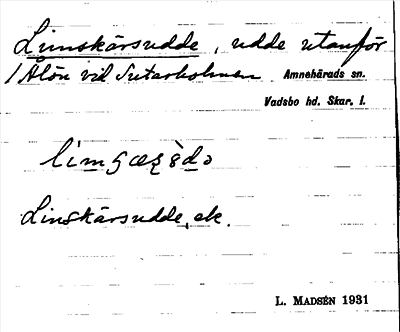 Limskärsudde, udde utanför
Ålön vid Suterholmen. Amnehärads sn.
Vadsbo hd. Skar. l.
Linskärsudde, ek.
L. MADSÉN 1931